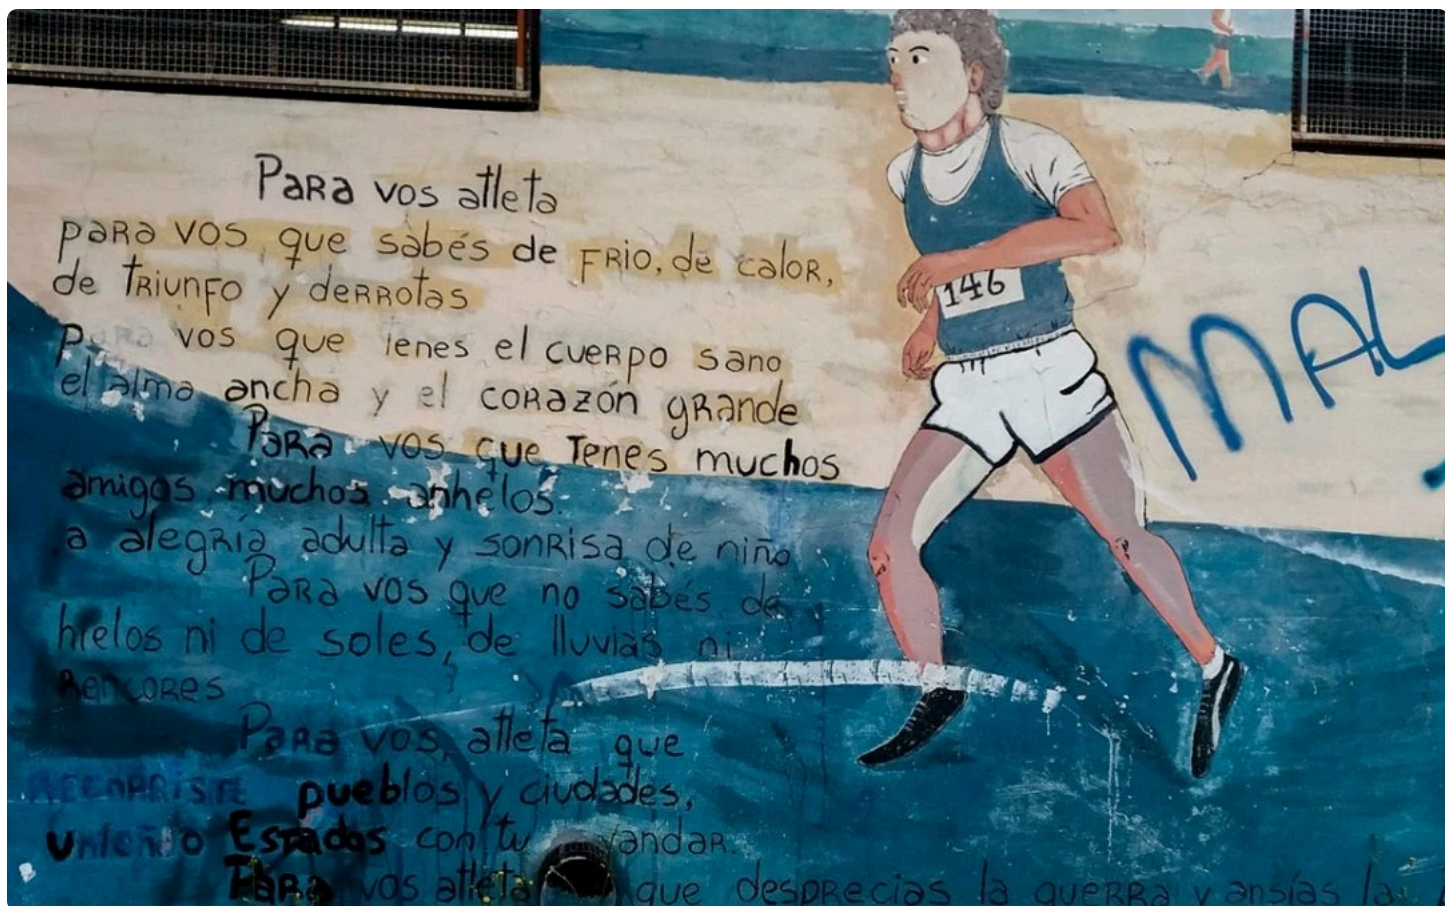 Para vos atleta
para vos que sabés de frio, de calor,
de triunfo y derrotas
Para vos que ienes el cuerpo sano
el alma ancha y el corazón grande
Para vos que Tenes muchos
amigos muchos anhelos.
a alegría adulta y sonrisa de niño
Para vos que no sabés de
hielos ni de soles, de lluvias ni
Rencores
Para vos, atleta que
RECORRISTE pueblos y ciudades,
uniendo Estados con tu andar.
Para vos atleta que desprecias la guerra y ansías la
146
MAL